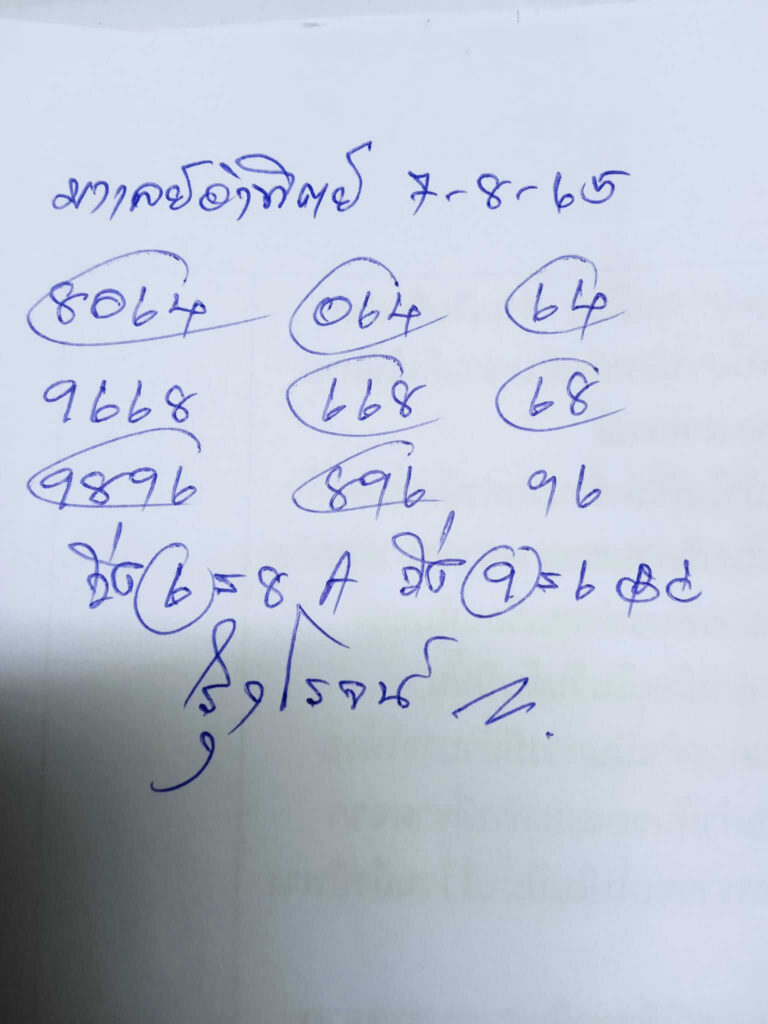 มาเลย์อาทิตย์ 7-8-65
8064 064 64
9668 668 68
9896 896 96
วิ่ง 6=8 A วิ่ง 9=6
รุ่งโรจน์